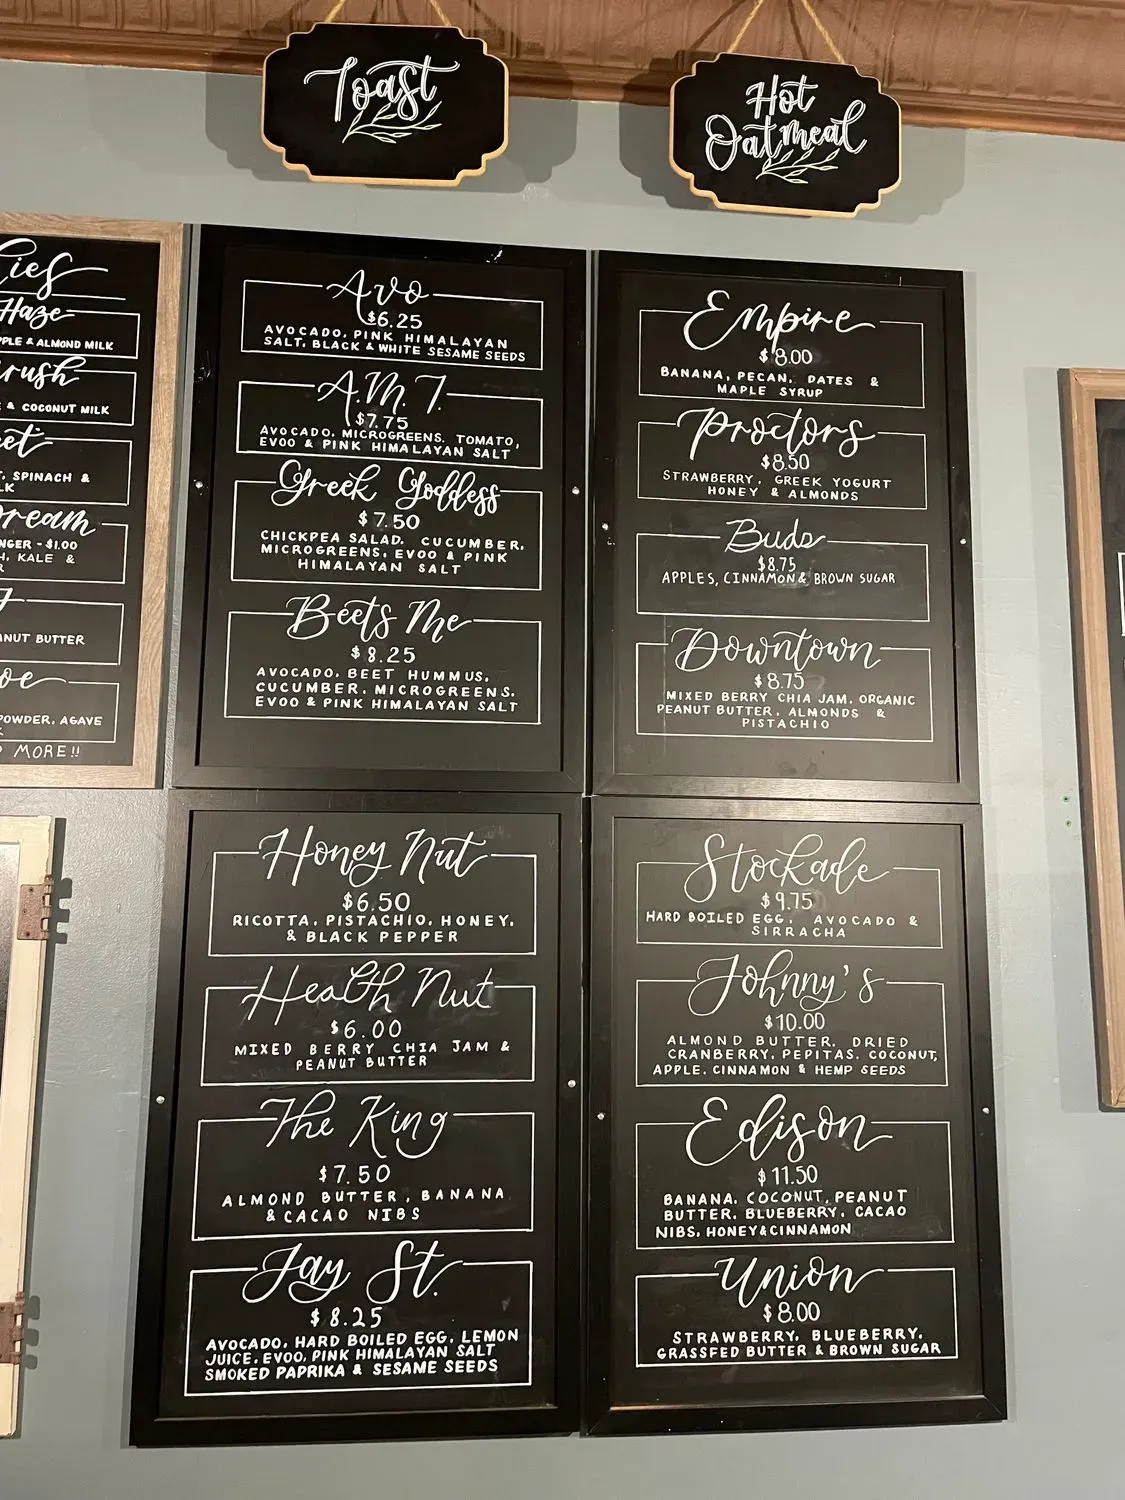 Toast
Hot
Oatmeal
Haze
& ALMOND MILK
& COCONUT MILK
SPINACH &
- $1.00
KALE &
BUTTER
POWDER, AGAVE
MORE!!
Avo
$6.25
AVOCADO, PINK HIMALAYAN
SALT, BLACK & WHITE SESAME SEEDS
A.M.T.
$7.75
AVOCADO, MICROGREENS, TOMATO,
EVOO & PINK HIMALAYAN SALT
Greek Goddess
$7.50
CHICKPEA SALAD, CUCUMBER,
MICROGREENS, EVOO & PINK
HIMALAYAN SALT
Beets Me
$8.25
AVOCADO, BEET HUMMUS,
CUCUMBER, MICROGREENS,
EVOO & PINK HIMALAYAN SALT
Empire
$8.00
BANANA, PECAN, DATES &
MAPLE SYRUP
Proctors
$8.50
STRAWBERRY, GREEK YOGURT
HONEY & ALMONDS
Buds
$8.75
APPLES, CINNAMON & BROWN SUGAR
Downtown
$8.75
MIXED BERRY CHIA JAM, ORGANIC
PEANUT BUTTER, ALMONDS &
PISTACHIO
Honey Nut
$6.50
RICOTTA, PISTACHIO, HONEY,
& BLACK PEPPER
Health Nut
$6.00
MIXED BERRY CHIA JAM &
PEANUT BUTTER
The King
$7.50
ALMOND BUTTER, BANANA
& CACAO NIBS
Jay St.
$8.25
AVOCADO, HARD BOILED EGG, LEMON
JUICE, EVOO, PINK HIMALAYAN SALT
SMOKED PAPRIKA & SESAME SEEDS
Stockade
$9.75
HARD BOILED EGG, AVOCADO &
SIRRACHA
Johnny's
$10.00
ALMOND BUTTER, DRIED
CRANBERRY, PEPITAS, COCONUT,
APPLE, CINNAMON & HEMP SEEDS
Edison
$11.50
BANANA, COCONUT, PEANUT
BUTTER, BLUEBERRY, CACAO
NIBS, HONEY & CINNAMON
Union
$8.00
STRAWBERRY, BLUEBERRY,
GRASSFED BUTTER & BROWN SUGAR